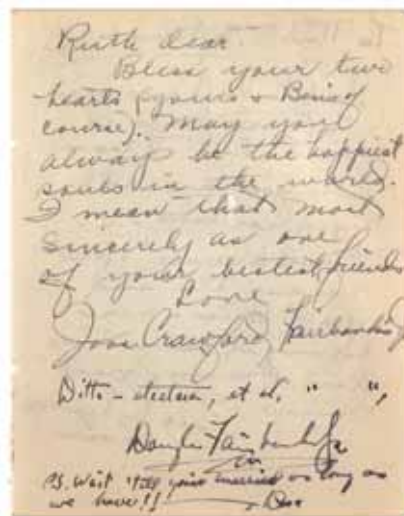 Ruth dear.
Bless your two
hearts (yours + Ben's of
course). May you
always be the happiest
souls in the world.
I mean that most
sincerely as one
of your bestest friends
Love
Joan Crawford Fairbanks
Ditto – etcetera, et al, " ",
Douglas Fairbanks Jr
P.S. Wait 'till your married as long as
we have!!